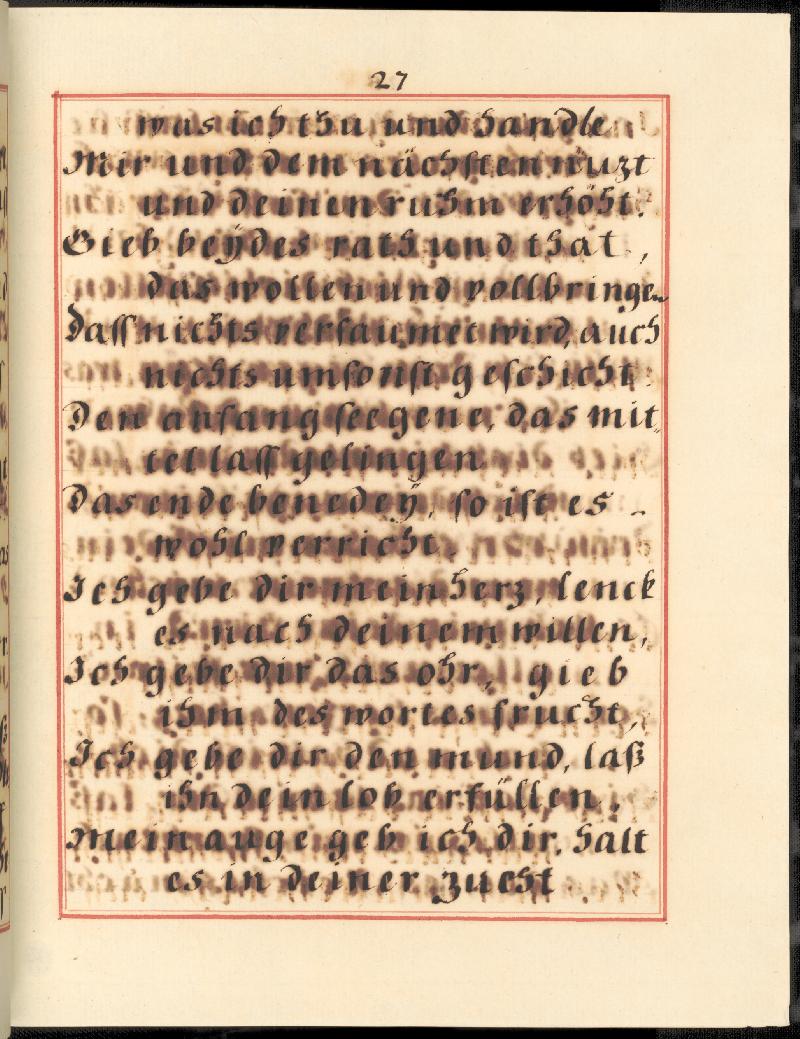 27
was ich thu und handle
Mir und dem nächsten nüzt
und deinen ruhm erhöht.
Gieb beÿdes rath und that,
das wollen und vollbringen
Dass nichts versaumet wird, auch
nichts umsonst geschicht.
Den anfang seegene, das mit„
tel lass gelingen
Das ende benedeÿ, so ist es
wohl verricht.
Ich gebe dir mein herz, lenck
es nach deinem willen,
Ich gebe dir das ohr, gieb
ihm des wortes frucht,
Ich gebe dir den mund, laß
ihn dein lob erfüllen,
Mein auge geb ich dir, halt
es in deiner zucht